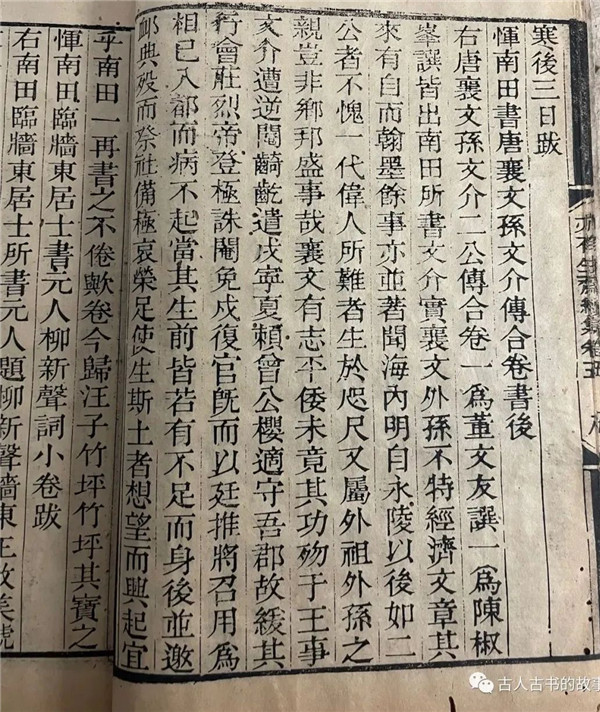 寒後三日跋
惲南田書唐襄文孫文介傳合卷書後
右唐襄文孫文介二公傳合卷一爲董文友譔一爲陳椒
峯譔皆出南田所書文介實襄文外孫不特經濟文章其
來有自而翰墨餘事亦並著聞海內明自永陵以後如二
公者不愧一代偉人所難者生於咫尺又屬外祖外孫之
親豈非鄉邦盛事哉襄文有志平倭未竟其功歿于王事
文介遭逆閹齮齕遣戍寧夏賴曾公櫻適守吾郡故緩其
行會莊烈帝登極誅閹免戍復官旣而以廷推將召用爲
相已入都而病不起當其生前皆若有不足而身後並邀
卹典殁而祭社備極哀榮足使生斯土者想望而興起宜
乎南田一再書之不倦歟卷今歸汪子竹坪竹坪其寶之
惲南田臨牆東居士書元人柳新聲詞小卷跋
右南田臨牆東居士所書元人題柳新聲牆東王故美號
亦有生齋續集卷五
古人古书的故事